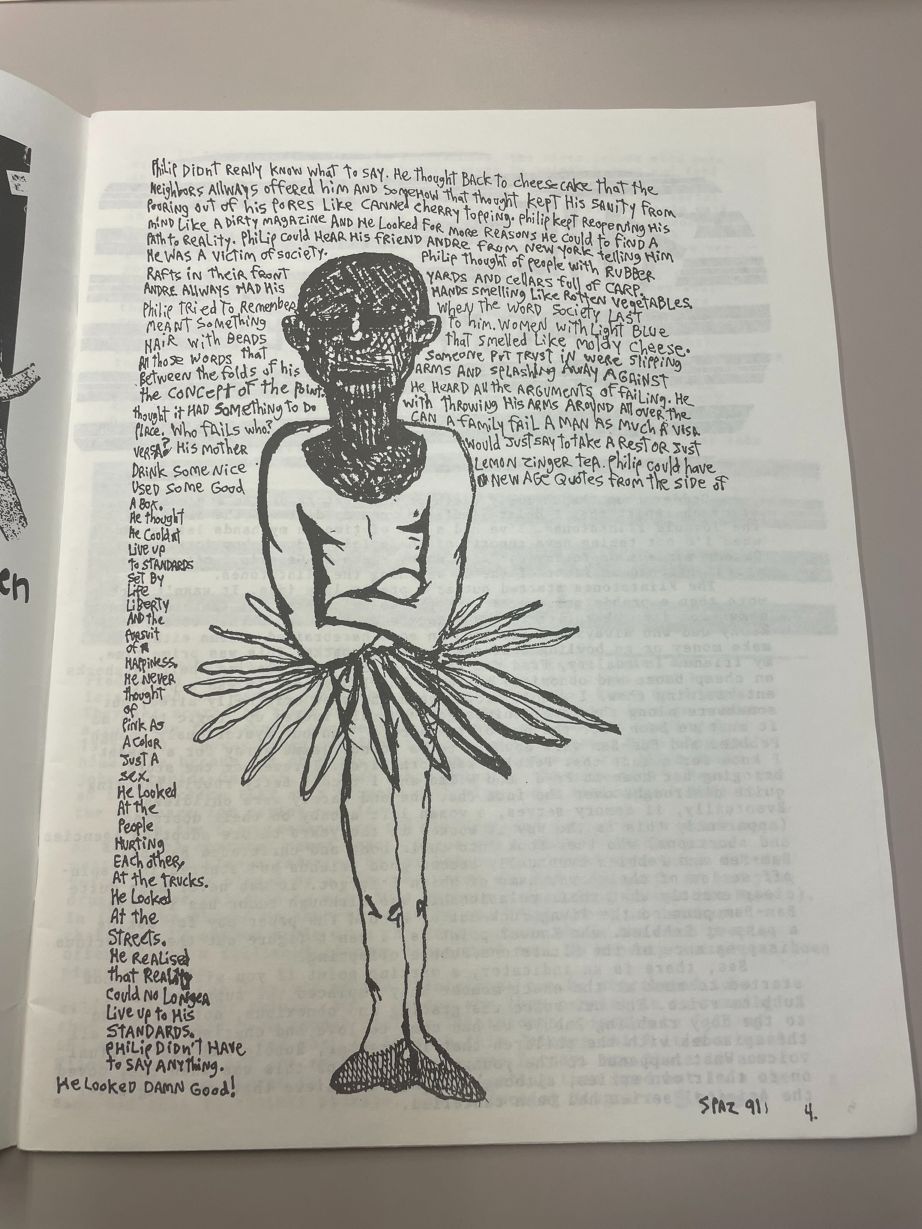 en
Philip DiDnt Really know what to say. He thought Back to cheesecake that the
Neighbors Allways offered him and Somehow that thought kept His Sanity from
Pooring out of his pores Like canned cherry topping. Philip kept Reopening His
mind Like a Dirty magazine and He Looked for more Reasons He could to find A
Path to Reality. Philip could Hear His friend Andre from New York telling Him
He was a victim of society. Philip thought of people with Rubber
Rafts in their front yards and cellars full of carp.
Andre Allways Had His Hands smelling Like Rotten vegetables.
Philip tried to Remember When the word Society Last
meant Something to him. Women with Light Blue
Hair with Beads that smelled Like moldy cheese.
All those words that Someone put tryst in were Slipping
Between the folds of his arms and splashing Away Against
the concept of the point. He Heard All the arguments of failing. He
thought it Had Something to Do with throwing His Arms Around All over the
Place. Who fails who? Can a family fail a man as much a visa
versa? His mother would Just say to take a rest or Just
Drink Some Nice Lemon Zinger tea. Philip could have
used Some Good New Age Quotes from the side of
A Box.
He thought
He Couldnt
Live up
to Standards
Set By
Life
Liberty
And the
Pursuit
of
Happiness.
He Never
thought
of
Pink As
A Color
Just A
Sex.
He Looked
At the
People
Hurting
Each other,
At the Trucks.
He Looked
At the
Streets.
He Realised
that Reality
Could No Longer
Live up to His
Standards.
Philip Didn't Have
to Say Anything.
He Looked Damn Good!
SPAZ 91'
4.